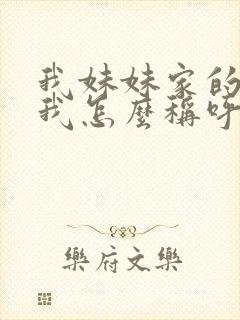 我妹妹家的
我怎麼稱呼
樂府文樂